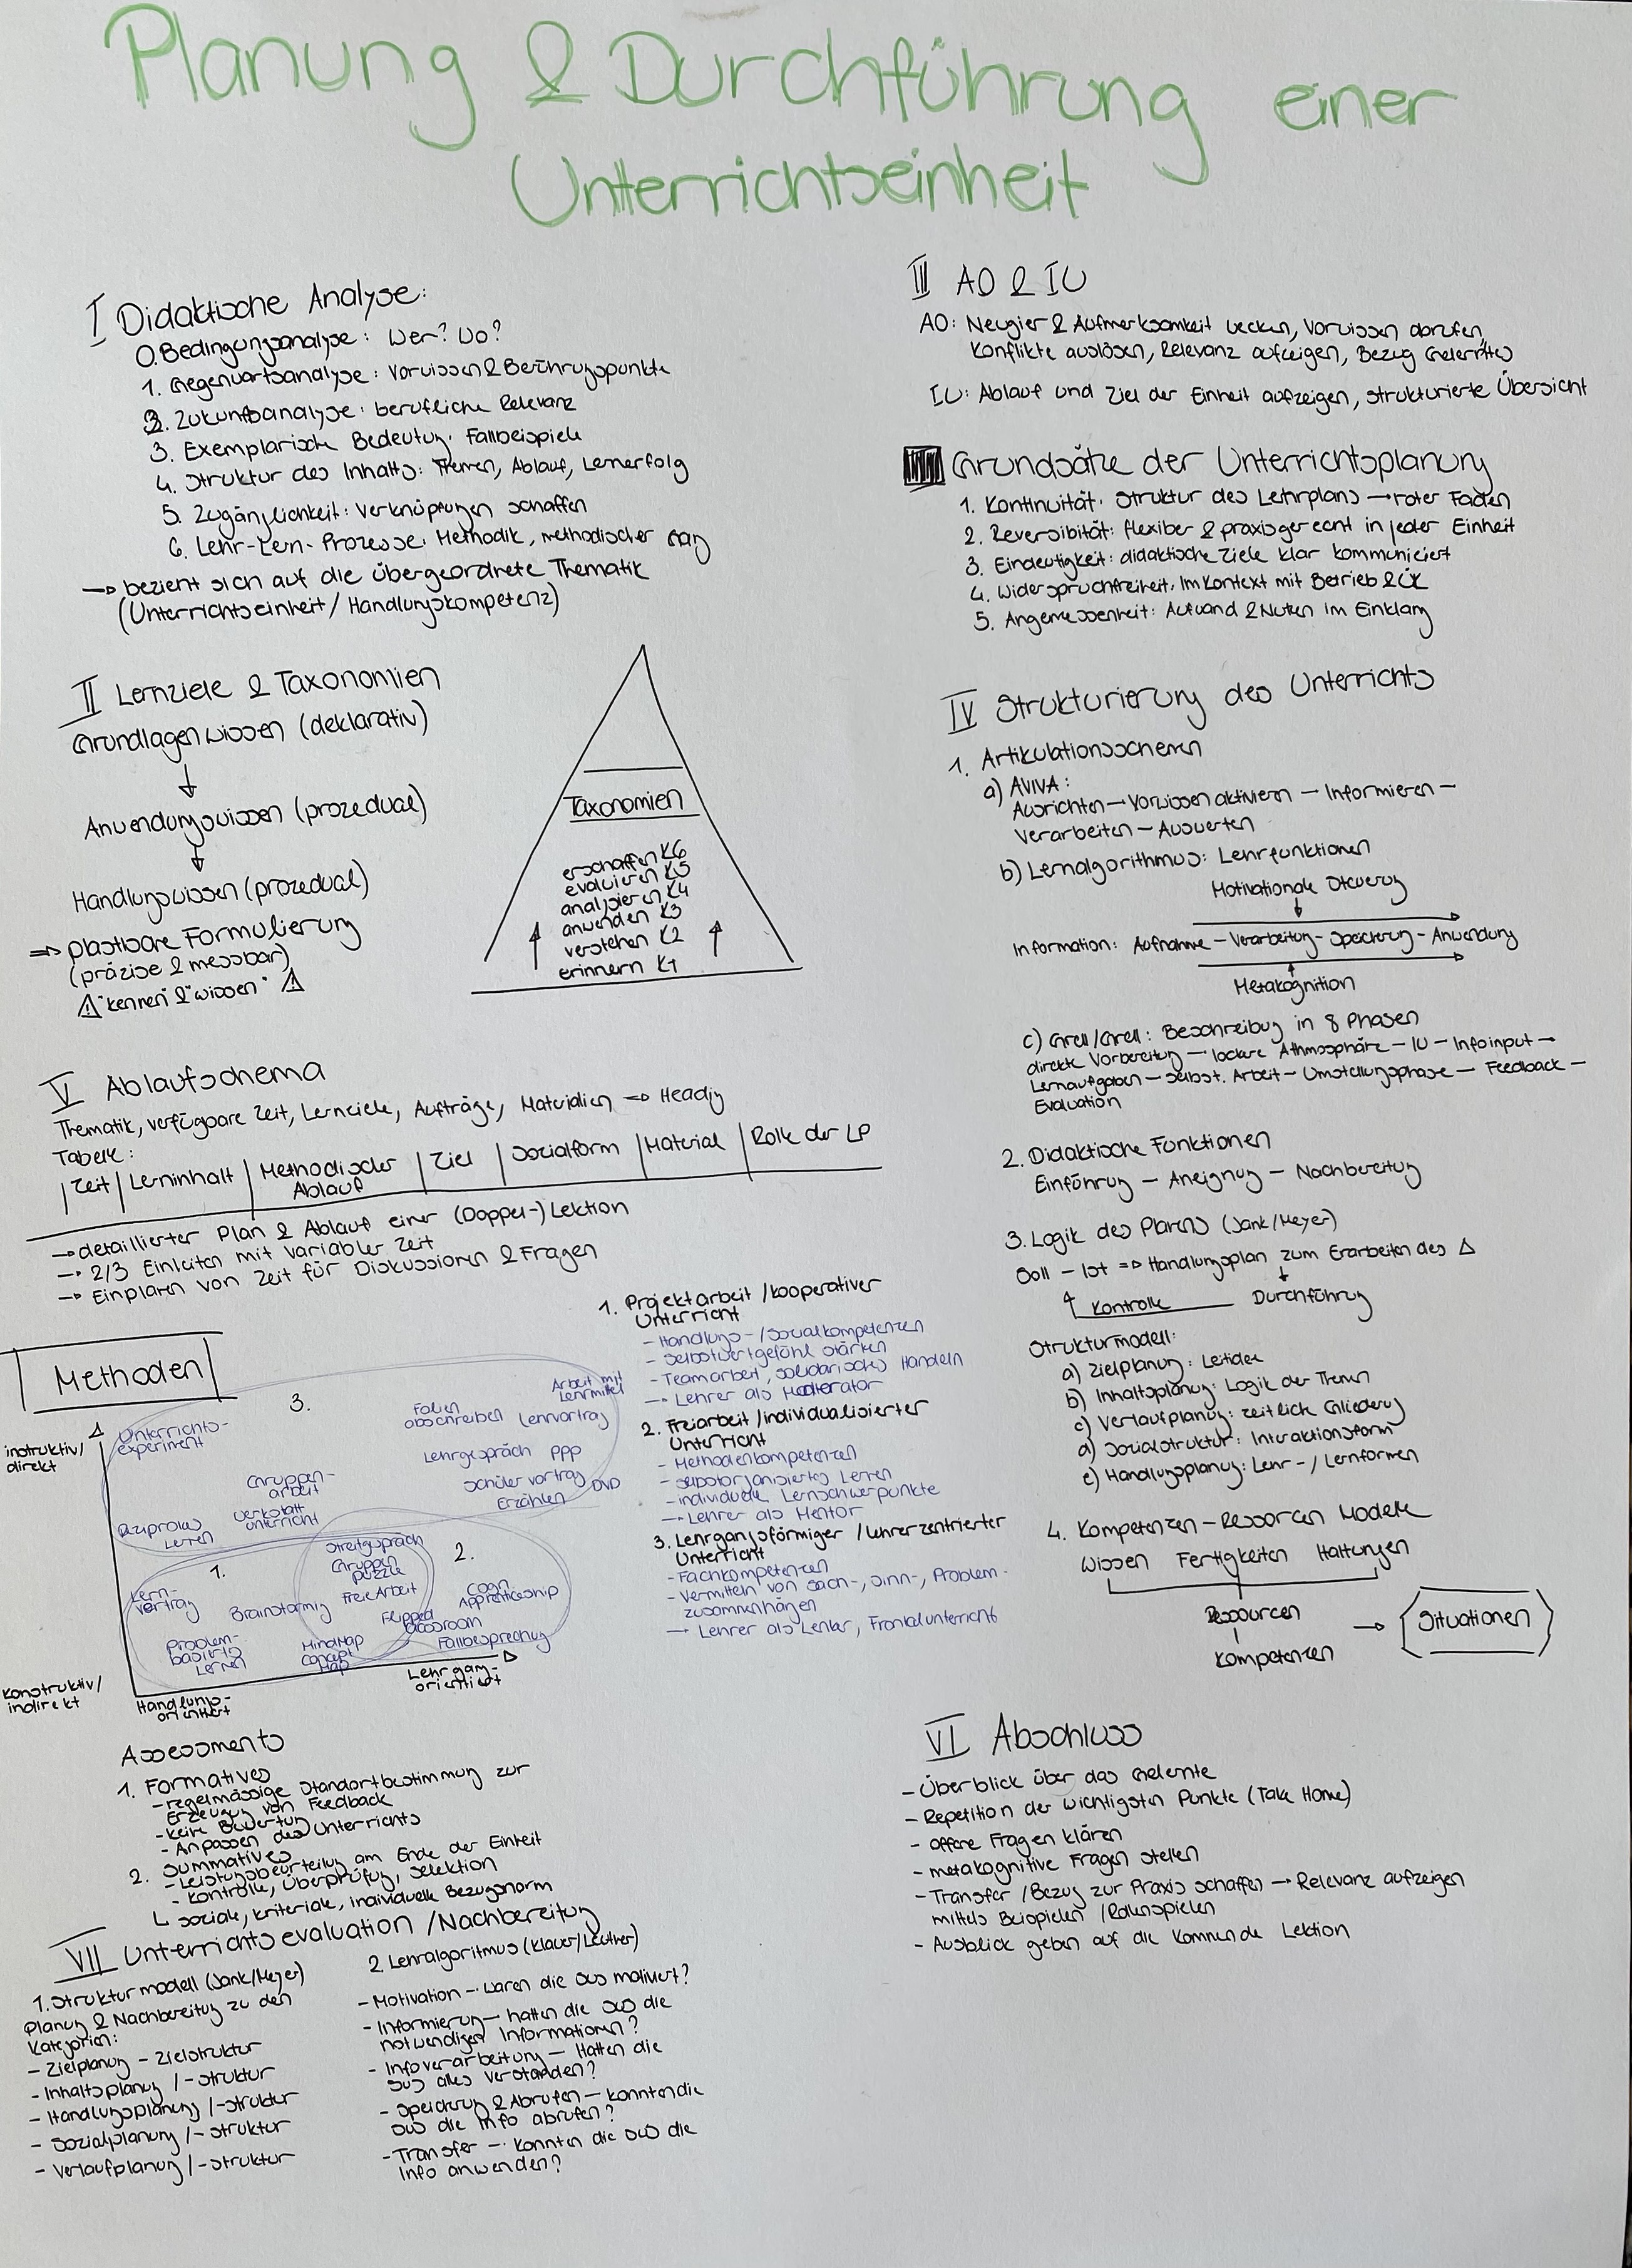 Planung & Durchführung einer
Unterrichtseinheit
I Didaktische Analyse:
0. Bedingungsanalyse: Wer? Wo?
1. Gegenwartsanalyse: Vorwissen & Berührungspunkte
2. Zukunftsanalyse: berufliche Relevanz
3. Exemplarische Bedeutung: Fallbeispiele
4. Struktur des Inhalts: Themen, Ablauf, Lernerfolg
5. Zugänglichkeit: Verknüpfungen schaffen
6. Lehr-Lern-Prozesse: Methodik, methodischer Gang
→ bezieht sich auf die übergeordnete Thematik
(Unterrichtseinheit / Handlungskompetenz)
II Lernziele & Taxonomien
Grundlagenwissen (deklarativ)
↓
Anwendungswissen (prozedual)
↓
Handlungswissen (prozedual)
⇒ plastbare Formulierung
(präzise & messbar)
⚠ "kennen" & "wissen" ⚠
Taxonomien
erschaffen K6
evaluieren K5
analysieren K4
anwenden K3
verstehen K2
erinnern K1
V Ablaufschema
Thematik, verfügbare Zeit, Lernziele, Aufträge, Materialien ⇒ Heading
Tabelle:
Zeit | Lerninhalt | Methodischer Ablauf | Ziel | Sozialform | Material | Rolle der LP
→ detaillierter Plan & Ablauf einer (Doppel-) Lektion
→ 2/3 Einleiten mit variabler Zeit
→ Einplanen von Zeit für Diskussionen & Fragen
Methoden
instruktiv/
direkt
3.
Unterrichts-
experiment
Folien
abschreiben
Arbeit mit
Lehrmittel
Lehrvortrag
Lehrgespräch PPP
Gruppen-
arbeit
Schülervortrag DVD
Erzählen
Werkstatt
unterricht
Reziprokes
Lernen
1.
2.
Streitgespräch
Gruppen
puzzle
Lern-
vertrag
Brainstorming
Freie Arbeit
Cogn.
Apprenticeship
Flipped
Classroom
Problem-
basiertes
Lernen
MindMap
Concept
Map
Fallbesprechung
konstruktiv/
indirekt
Handlungs-
orientiert
Lehrgang-
orientiert
1. Projektarbeit / kooperativer
Unterricht
- Handlungs-/Sozialkompetenzen
- Selbstwertgefühl stärken
- Teamarbeit, solidarisches Handeln
→ Lehrer als Moderator
2. Freiarbeit / individualisierter
Unterricht
- Methodenkompetenzen
- selbstorganisiertes Lernen
- individuelle Lernschwerpunkte
→ Lehrer als Mentor
3. Lehrgangsförmiger / lehrerzentrierter
Unterricht
- Fachkompetenzen
- Vermitteln von Sach-, Sinn-, Problem-
zusammenhängen
→ Lehrer als Lenker, Frontalunterricht
Assessments
1. Formatives
- regelmässige Standortbestimmung zur
Erzeugung von Feedback
- keine Bewertung
- Anpassen des Unterrichts
2. Summatives
- Leistungsbeurteilung am Ende der Einheit
- Kontrolle, Überprüfung, Selektion
↳ soziale, kriteriale, individuelle Bezugsnorm
VII Unterrichtsevaluation / Nachbereitung
1. Strukturmodell (Jank/Meyer)
Planung & Nachbereitung zu den
Kategorien:
- Zielplanung - Zielstruktur
- Inhaltsplanung / -struktur
- Handlungsplanung / -struktur
- Sozialplanung / -struktur
- Verlaufplanung / -struktur
2. Lehralgoritmus (Klauer/Leutner)
- Motivation → Waren die SuS motiviert?
- Informierung — hatten die SuS die
notwendigen Informationen?
- Infoverarbeitung — Hatten die
SuS alles verstanden?
- Speicherung & Abrufen — konnten die
SuS die Info abrufen?
- Transfer → Konnten die SuS die
Info anwenden?
III AO & IU
AO: Neugier & Aufmerksamkeit wecken, Vorwissen abrufen,
Konflikte auslösen, Relevanz aufzeigen, Bezug Gelerntes
IU: Ablauf und Ziel der Einheit aufzeigen, strukturierte Übersicht
Grundsätze der Unterrichtsplanung
1. Kontinuität: Struktur des Lehrplans → roter Faden
2. Reversibilität: flexibel & praxisgerecht in jeder Einheit
3. Eindeutigkeit: didaktische Ziele klar kommuniziert
4. Widerspruchfreiheit: Im Kontext mit Betrieb & ÜK
5. Angemessenheit: Aufwand & Nutzen im Einklang
IV Strukturierung des Unterrichts
1. Artikulationsschemen
a) AVIVA:
Ausrichten — Vorwissen aktivieren — Informieren —
Verarbeiten — Auswerten
b) Lernalgorithmus: Lehrfunktionen
Motivationale Steuerung
Information: Aufnahme — Verarbeitung — Speicherung — Anwendung
Metakognition
c) Grell/Grell: Beschreibung in 8 Phasen
direkte Vorbereitung — lockere Athmosphäre — IU — Infoinput —
Lernaufgaben — selbst. Arbeit — Umstellungsphase — Feedback —
Evaluation
2. Didaktische Funktionen
Einführung — Aneignung — Nachbereitung
3. Logik des Planens (Jank/Meyer)
Soll — Ist ⇒ Handlungsplan zum Erarbeiten des Δ
↑ Kontrolle
↓
Durchführung
Strukturmodell:
a) Zielplanung: Leitidee
b) Inhaltsplanung: Logik der Themen
c) Verlaufplanung: zeitliche Gliederung
d) Sozialstruktur: Interaktionsform
e) Handlungsplanung: Lehr-/Lernformen
4. Kompetenzen-Ressourcen Modelle
Wissen Fertigkeiten Haltungen
Ressourcen
Kompetenzen
→ Situationen
VI Abschluss
- Überblick über das Gelernte
- Repetition der wichtigsten Punkte (Take Home)
- offene Fragen klären
- metakognitive Fragen stellen
- Transfer / Bezug zur Praxis schaffen → Relevanz aufzeigen
mittels Beispielen / Rollenspielen
- Ausblick geben auf die kommende Lektion